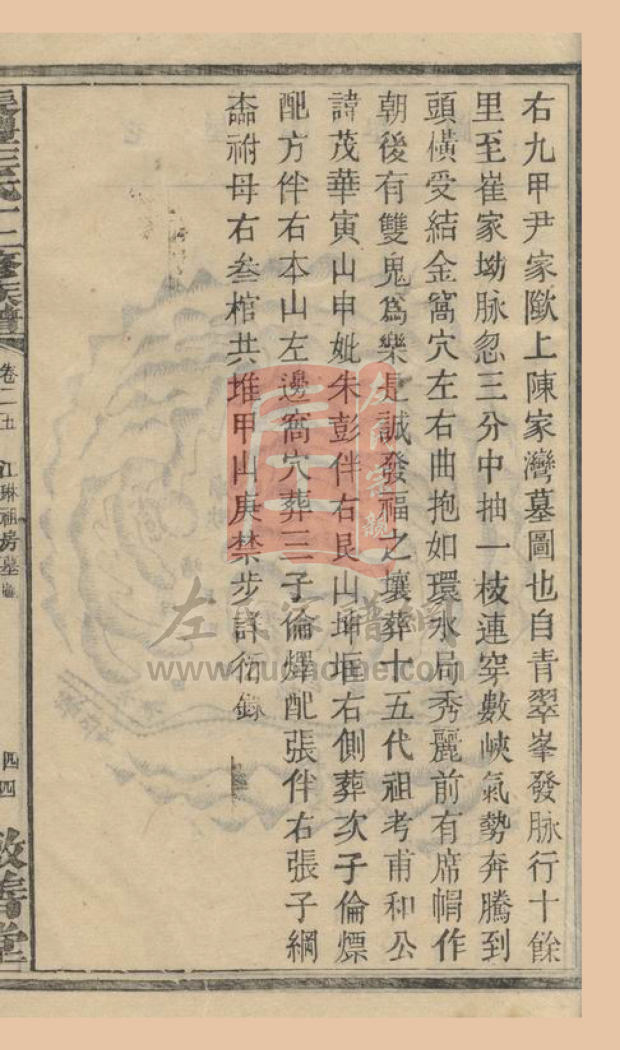 右九甲尹家隞上陳家灣墓圖也自青翠峯發脉行十餘
里至崔家坳脉忽三分中抽一枝連穿數峽氣勢奔騰到
頭橫受結金窩穴左右曲抱如環水局秀麗前有席帽作
朝後有雙鬼爲樂是誠發福之壤葬十五代祖考甫和公
諱茂華寅山申妣朱彭伴右艮山坤堰右側葬次子倫熛
配方伴右本山左邊窩穴葬三子倫燡配張伴右張子綱
祔母右叁棺共堆甲山庚禁步詳衍錄
卷二五
江琳祖房墓
四四
敦善堂
左氏家譜網
www.zuohome.com